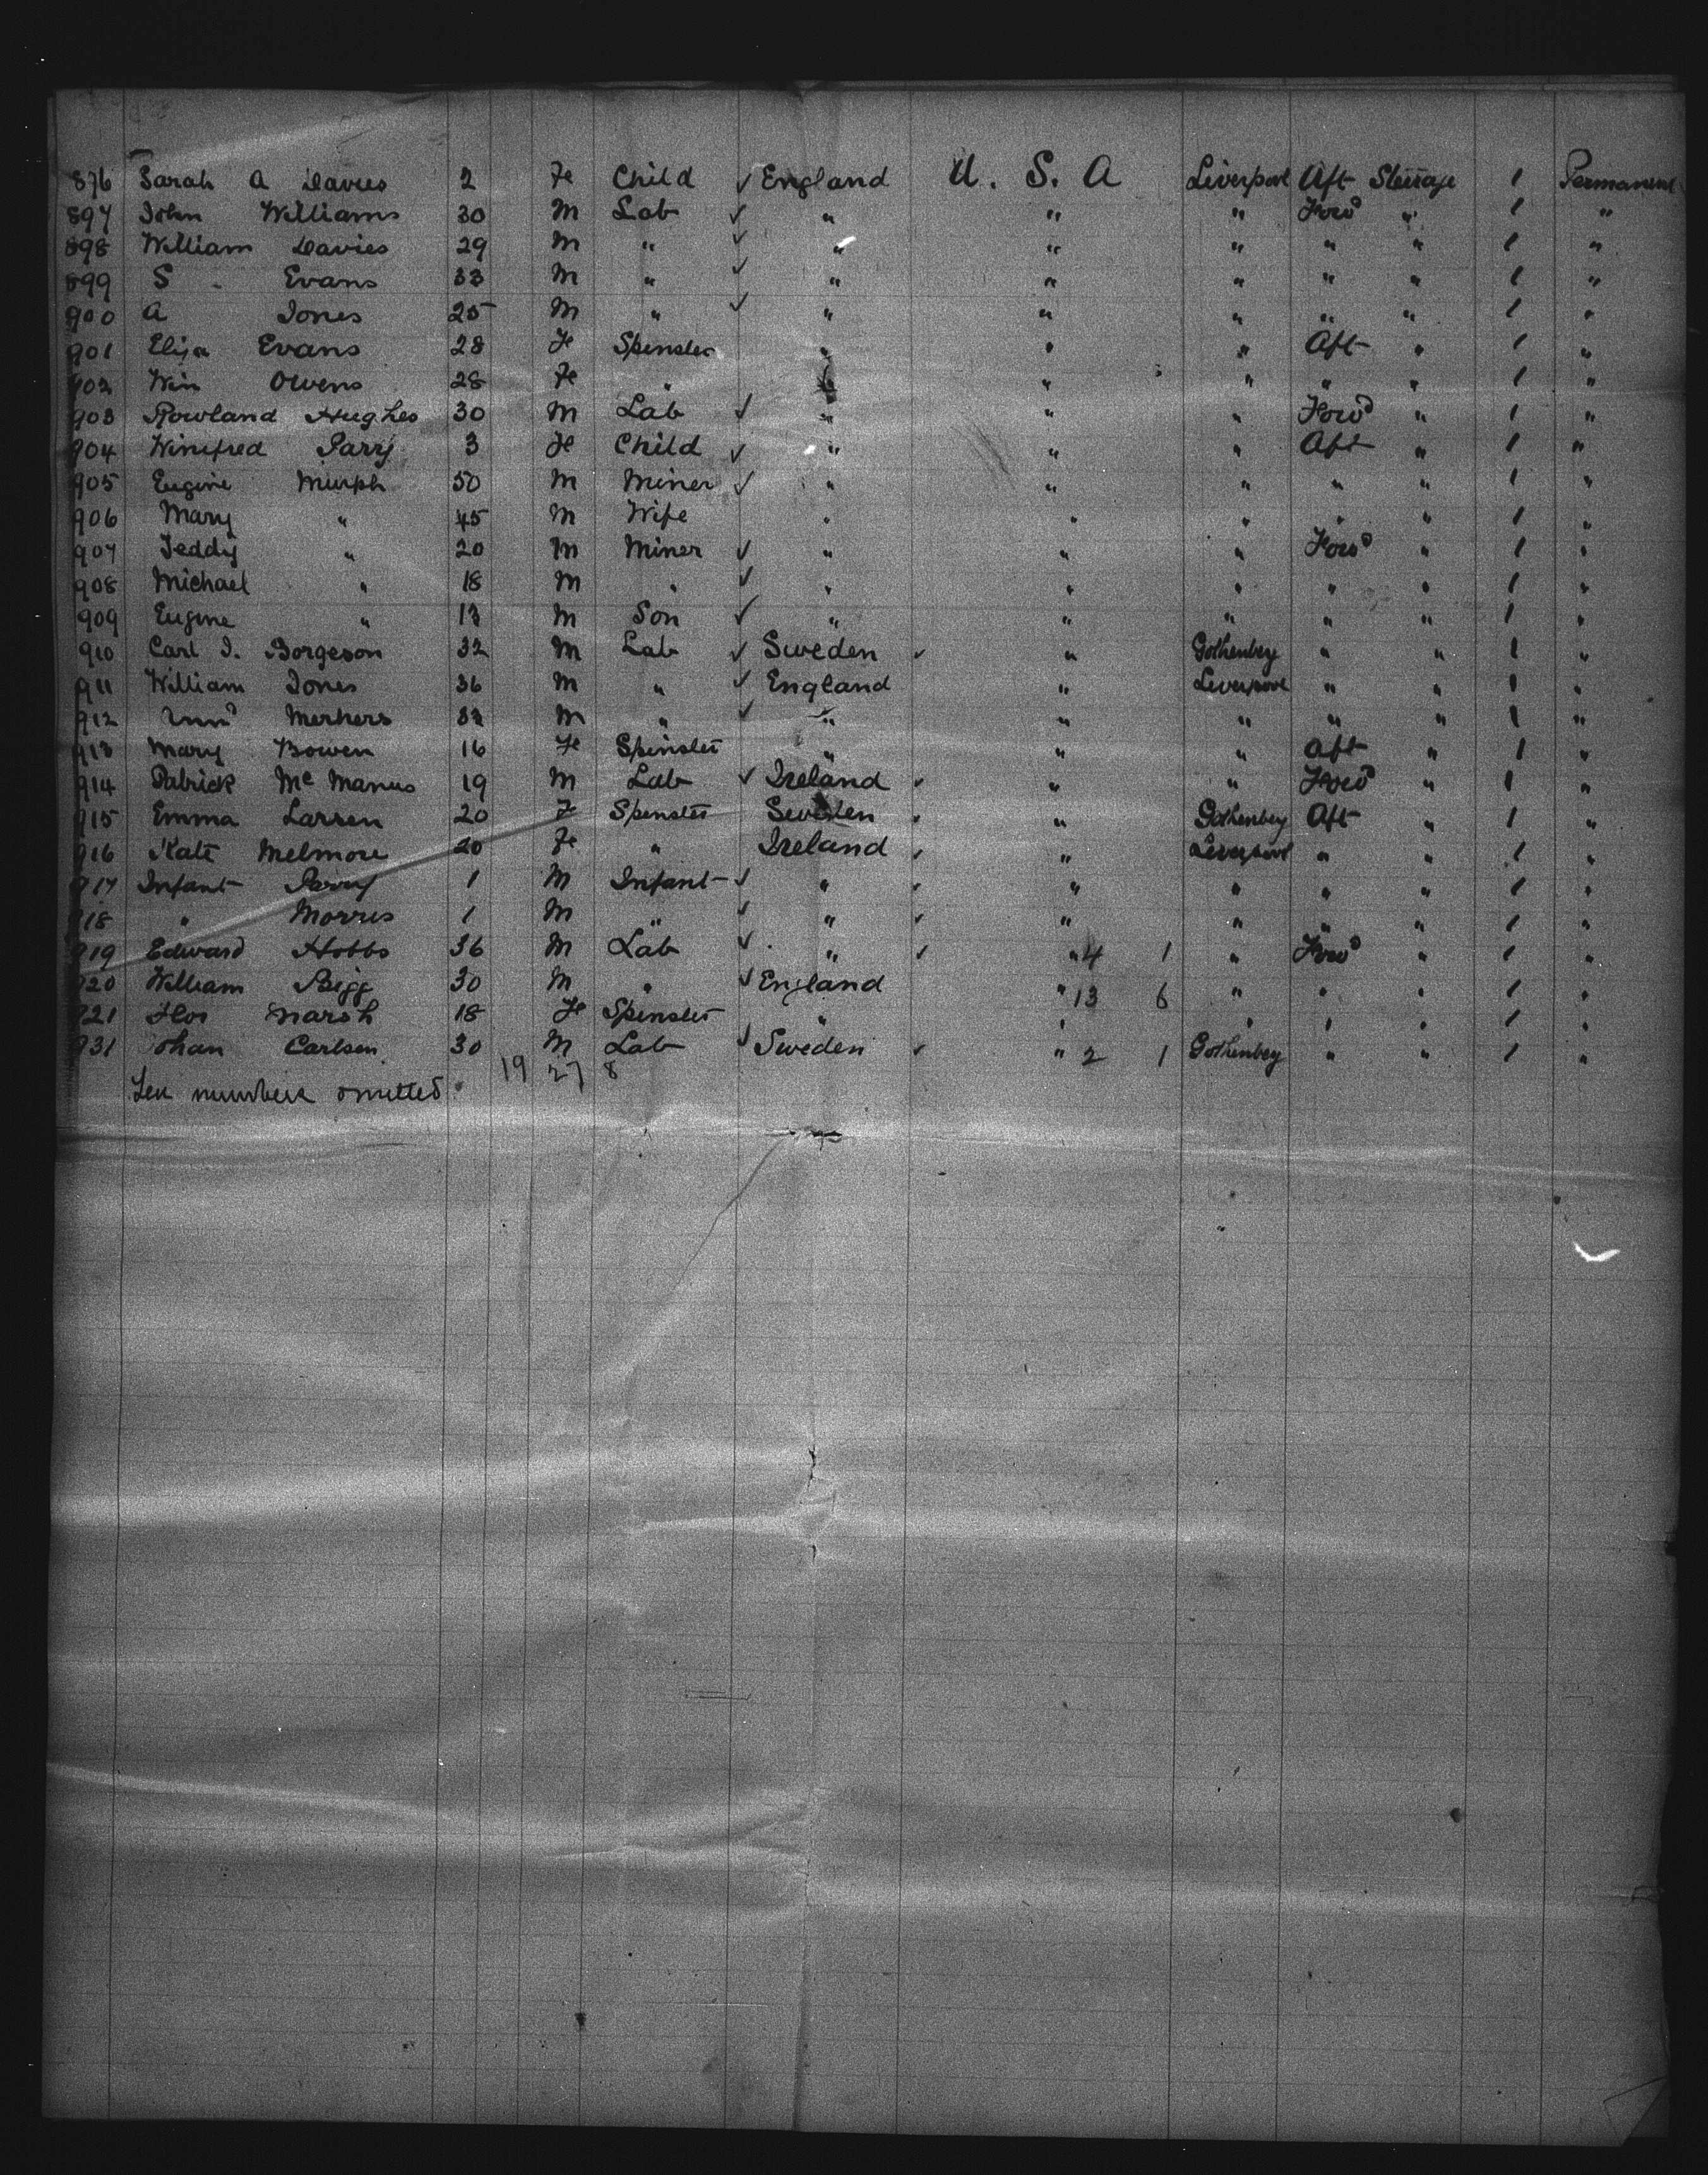 896 Sarah A Davies 2 Fe Child ✓ England U. S. A Liverpool Aft Steerage 1 Permanent
897 John Williams 30 M Lab ✓ " " " Forwd " 1 "
898 William Davies 29 M " ✓ " " " " " 1 "
899 S. Evans 33 M " ✓ " " " " " 1 "
900 A Jones 25 M " ✓ " " " " " 1 "
901 Eliza Evans 28 Fe Spinster " " " Aft " 1 "
902 Win Owens 28 Fe " " " " " " 1 "
903 Rowland Hughes 30 M Lab ✓ " " " Forwd " 1 "
904 Winifred Parry 3 Fe Child ✓ " " " Aft " 1 "
905 Eugine Murph 50 M Miner ✓ " " " " " 1 "
906 Mary " 45 M Wife " " " " " 1 "
907 Teddy " 20 M Miner ✓ " " " Forwd " 1 "
908 Michael " 18 M " ✓ " " " " " 1 "
909 Eugine " 13 M Son ✓ " " " " " 1 "
910 Carl J. Borgeson 32 M Lab ✓ Sweden ✓ " Gothenberg " " 1 "
911 William Jones 36 M " ✓ England " Liverpool " " 1 "
912 33 M " ✓ " " " " " 1 "
913 Mary Bowen 16 Fe Spinster " " " Aft " 1 "
914 Patrick Mc Manus 19 M Lab ✓ Ireland ✓ " " Forwd " 1 "
915 Emma Larsen 20 Fe Spinster Sweden ✓ " Gothenberg Aft " 1 "
916 Kate Melmore 20 Fe " Ireland ✓ " Liverpool " " 1 "
917 Infant Parry 1 M Infant ✓ " ✓ " " " " 1 "
918 " Morris 1 M " ✓ " ✓ " " " " 1 "
919 Edward Hobbs 36 M Lab ✓ " ✓ " 4 1 " Forwd " 1 "
920 William Bigg 30 M " ✓ England " 13 6 " " " 1 "
921 Marsh 18 Fe Spinster " " " " " 1 "
931 Johan Carlsen 30 M Lab ✓ Sweden ✓ " 2 1 Gothenberg " " 1 "
19 27 8
Ten numbers omitted.